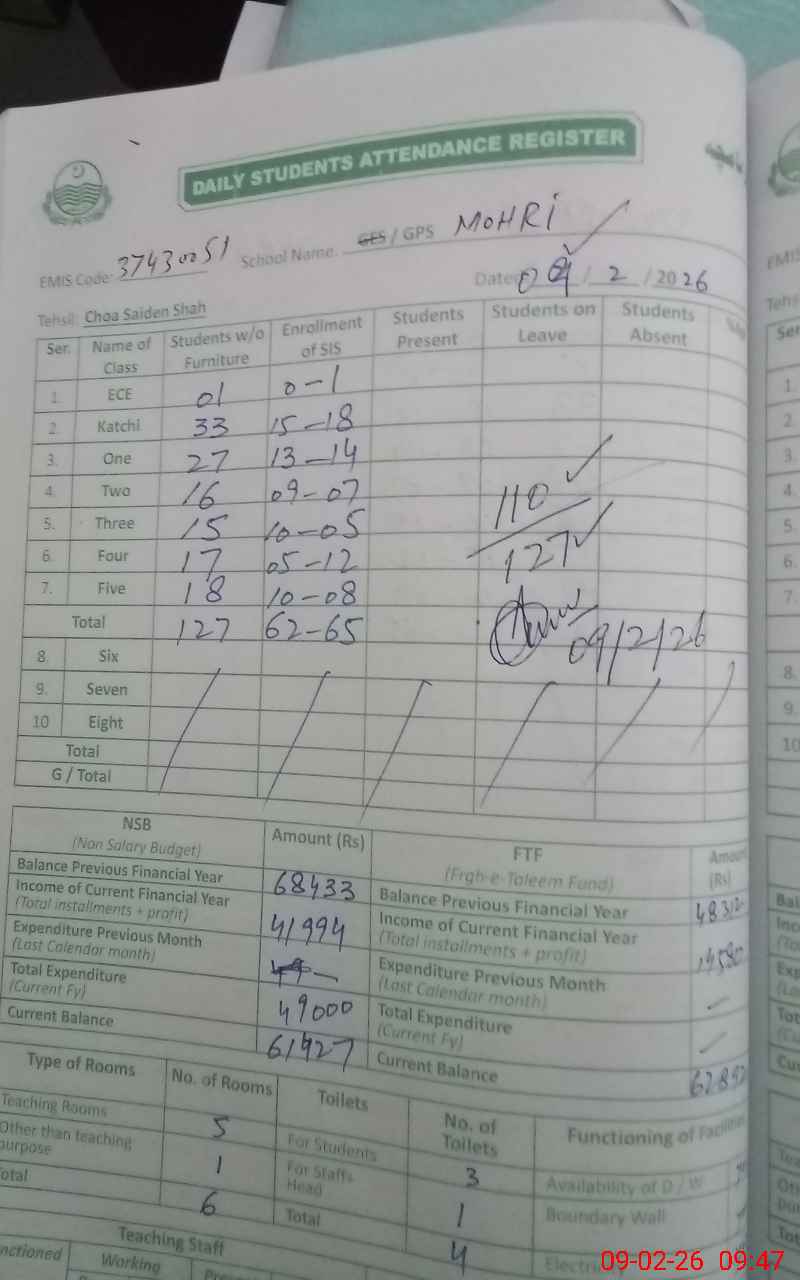 DAILY STUDENTS ATTENDANCE REGISTER
EMIS Code: 37430051 School Name. GES / GPS MOHRI
Date: 09 / 2 / 2026
Tehsil: Choa Saiden Shah
Ser. Name of Class Students w/o Furniture Enrollment of SIS Students Present Students on Leave Students Absent
1. ECE 01 0-1
2. Katchi 33 15-18
3. One 27 13-14
4. Two 16 09-07
5. Three 15 10-05
6. Four 17 05-12
7. Five 18 10-08
Total 127 62-65
110
127
09/2/26
8. Six
9. Seven
10 Eight
Total
G / Total
NSB (Non Salary Budget) Amount (Rs) FTF (Frgh-e-Taleem Fund) Amount (Rs)
Balance Previous Financial Year 68433 Balance Previous Financial Year
Income of Current Financial Year (Total installments + profit) 41994 Income of Current Financial Year (Total installments + profit)
Expenditure Previous Month (Last Calendar month) Expenditure Previous Month (Last Calendar month)
Total Expenditure (Current Fy) 49000 Total Expenditure (Current Fy)
Current Balance 61427 Current Balance
Type of Rooms No. of Rooms Toilets No. of Toilets Functioning of
Teaching Rooms 5 For Students 3 Availability of D / W
Other than teaching purpose 1 For Staff+ Head 1 Boundary Wall
Total 6 Total 4
Teaching Staff
Working
09-02-26 09:47